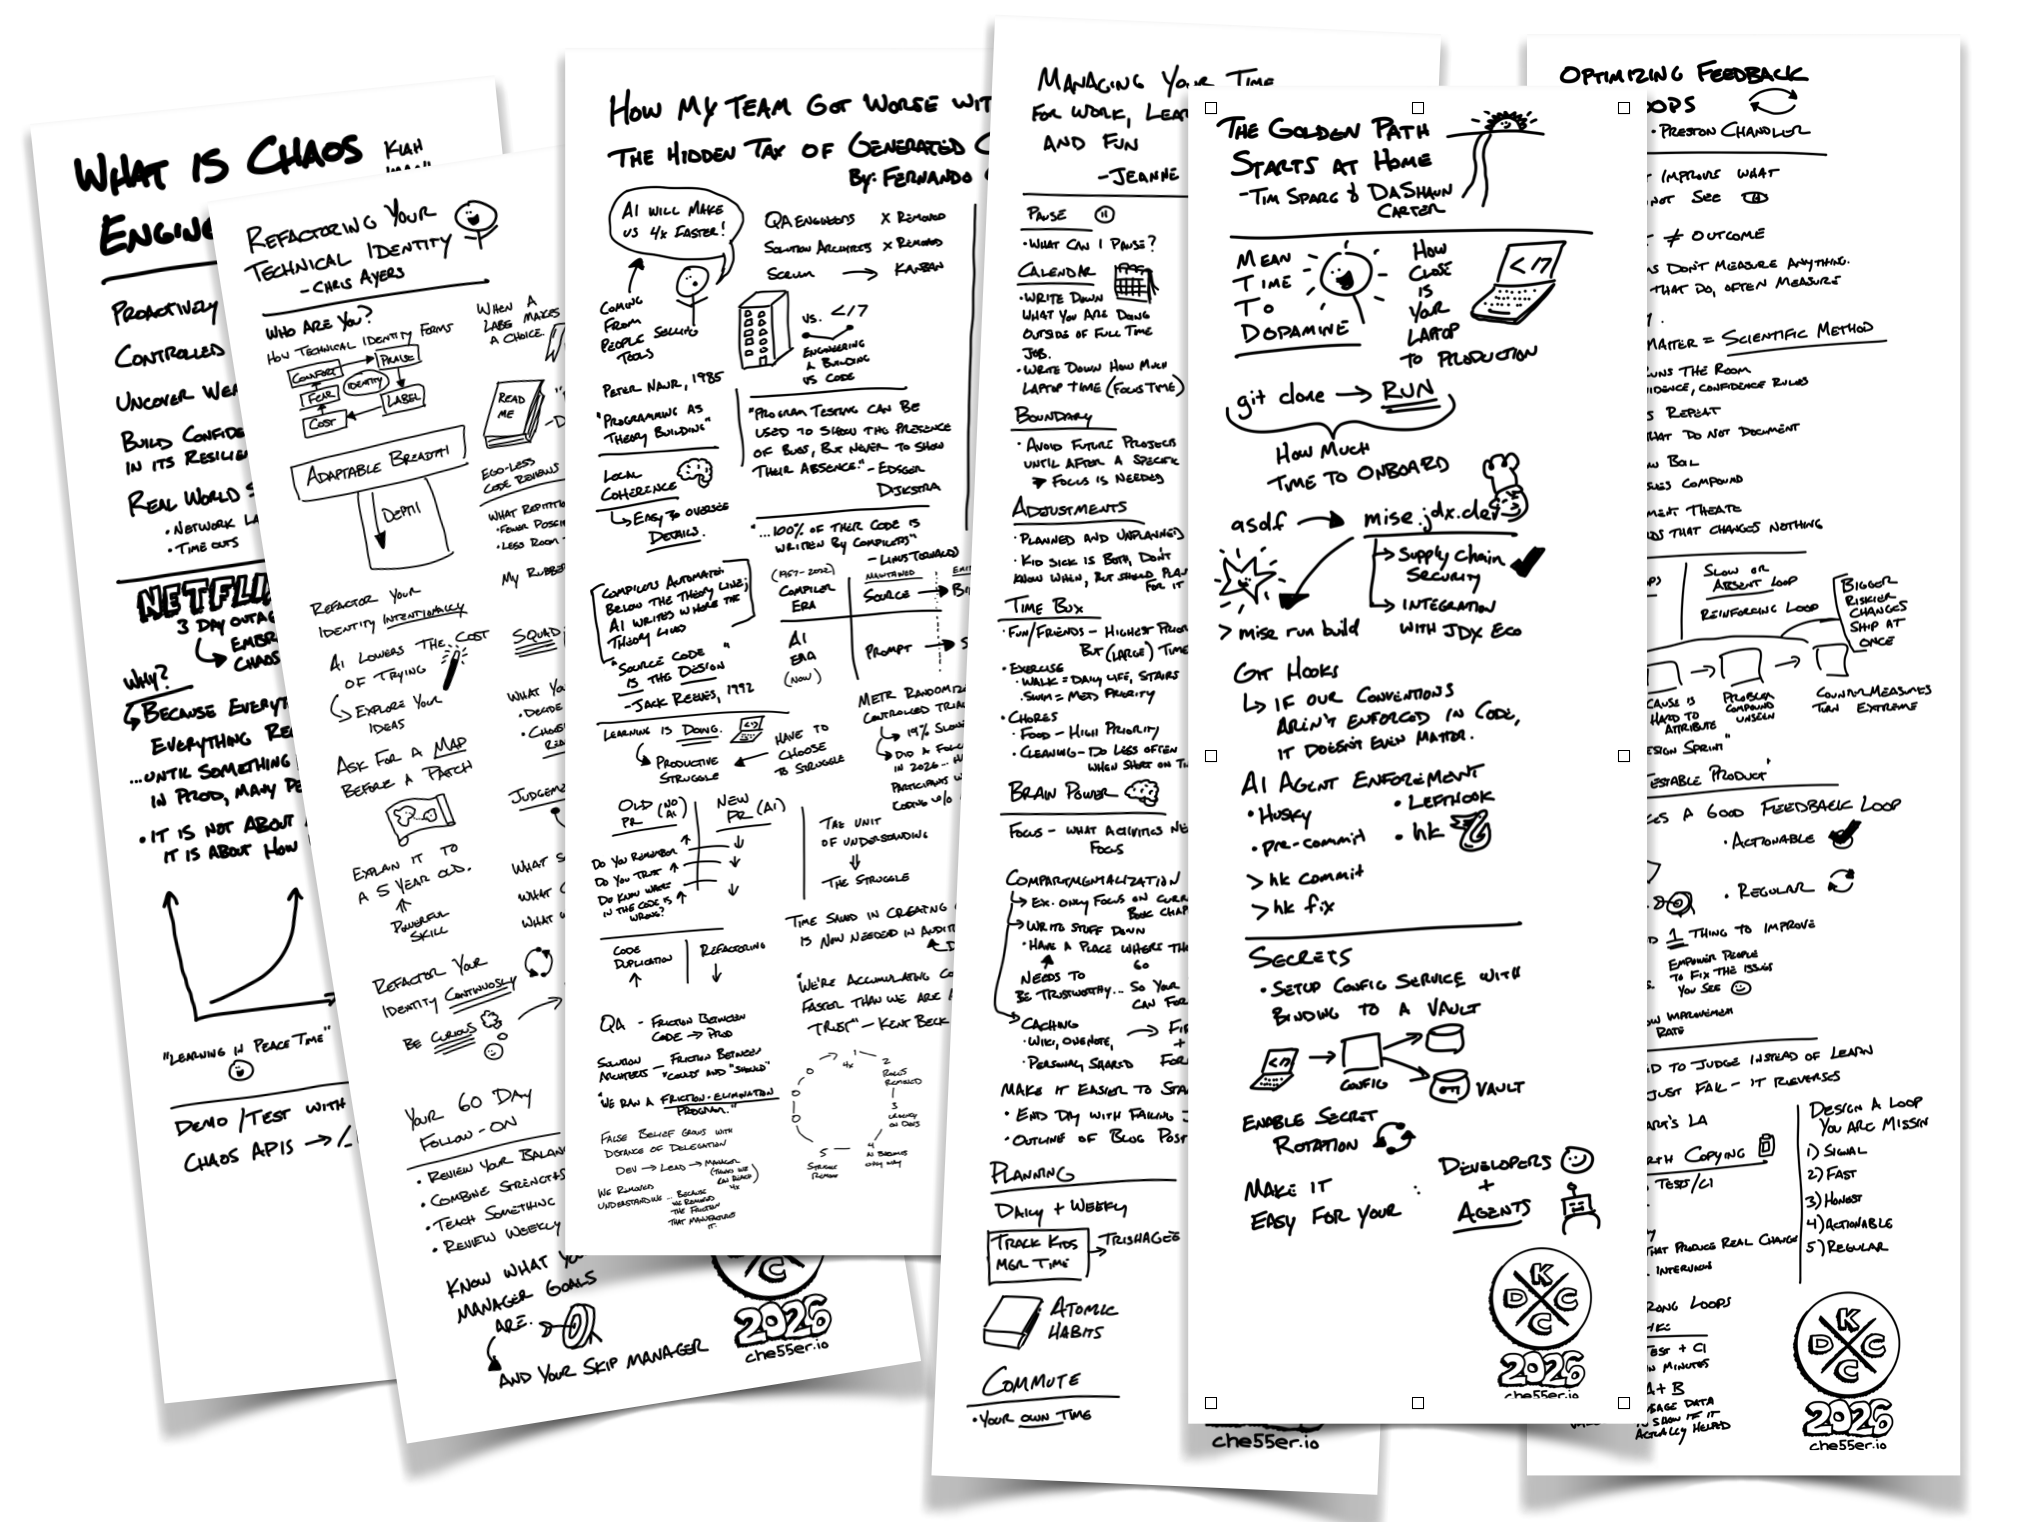 WHAT IS CHAOS
KIAH
PROACTIVELY
CONTROLLED
UNCOVER
BUILD
IN ITS
REAL WORLD
• NETWORK
• TIME OUTS
3 DAY
WHY?
BECAUSE
EVERYTHING
...UNTIL SOMETHING
IN PROD, MANY
• IT IS NOT ABOUT
IT IS ABOUT HOW
"LEARNING IN PEACE TIME"
DEMO/TEST WITH
CHAOS APIS →
REFACTORING YOUR
TECHNICAL IDENTITY
- CHRIS AYERS
WHO ARE YOU?
HOW TECHNICAL IDENTITY FORMS
COMFORT
PRAISE
IDENTITY
FEAR
LABEL
COST
WHEN A
LABEL MAKES
A CHOICE.
READ
ME
ADAPTABLE BREADTH
DEPTH
EGO-LESS
CODE REVIEWS
REFACTOR YOUR
IDENTITY INTENTIONALLY
AI LOWERS THE COST
OF TRYING
EXPLORE YOUR
IDEAS
SQUAD
ASK FOR A MAP
BEFORE A PATCH
EXPLAIN IT TO
A 5 YEAR OLD.
POWERFUL
SKILL
REFACTOR YOUR
IDENTITY CONTINUOSLY
BE CURIOUS
YOUR 60 DAY
FOLLOW-ON
• REVIEW YOUR
• COMBINE STRENGTHS
• TEACH SOMETHING
• REVIEW WEEKLY
KNOW WHAT
MANAGER GOALS
ARE.
AND YOUR SKIP MANAGER
C
2026
che55er.io
HOW MY TEAM GOT WORSE
THE HIDDEN TAX OF GENERATED
BY: FERNANDO
AI WILL MAKE
US 4X FASTER!
COMING
FROM
PEOPLE SELLING
TOOLS
QA ENGINEERS X REMOVED
SOLUTION ARCHITECTS X REMOVED
SCRUM → KANBAN
VS. </>
ENGINEERING
A BUILDING
VS CODE
PETER NAUR, 1985
"PROGRAMMING AS
THEORY BUILDING"
"PROGRAM TESTING CAN BE
USED TO SHOW THE PRESENCE
OF BUGS, BUT NEVER TO SHOW
THEIR ABSENCE." - EDSGER
DIJKSTRA
LOCAL
COHERENCE
EASY TO OVERSEE
DETAILS.
"...100% OF THEIR CODE IS
WRITTEN BY COMPILERS"
- LINUS TORVALDS
COMPILERS AUTOMATED
BELOW THE THEORY LINE;
AI WRITES WHERE THE
THEORY LIVED
(1957-2022)
COMPILER
ERA
MAINTAINED
SOURCE →
AI
ERA
(NOW)
PROMPT →
"SOURCE CODE
IS THE DESIGN"
- JACK REEVES, 1992
LEARNING IS DOING.
PRODUCTIVE
STRUGGLE
HAVE TO
CHOOSE
TO STRUGGLE
OLD PR (NO AI)
NEW PR (AI)
DO YOU REMEMBER
DO YOU TRUST
DO KNOW WHAT
IN THE CODE IS
WRONG?
THE UNIT
OF UNDERSTANDING
THE STRUGGLE
CODE
DUPLICATION
REFACTORING
TIME SAVED IN CREATING
IS NOW NEEDED IN
"WE'RE ACCUMULATING
FASTER THAN WE ARE
TRUST" - KENT BECK
QA - FRICTION BETWEEN
CODE → PROD
SOLUTION
ARCHITECTS - FRICTION BETWEEN
"COULD" AND "SHOULD"
"WE RAN A FRICTION-ELIMINATION
PROGRAM."
FALSE BELIEF GROWS WITH
DISTANCE OF DELEGATION
DEV → LEAD → MANAGER
WE REMOVED
UNDERSTANDING... BECAUSE
WE REMOVED
THE FRICTION
THAT MANUFACTURED
IT.
MANAGING YOUR TIME
FOR WORK,
AND FUN
- JEANNE
PAUSE
• WHAT CAN I PAUSE?
CALENDAR
• WRITE DOWN
WHAT YOU ARE DOING
OUTSIDE OF FULL TIME
JOB.
• WRITE DOWN HOW MUCH
LAPTOP TIME (FOCUS TIME)
BOUNDARY
• AVOID FUTURE PROJECTS
UNTIL AFTER A SPECIFIC
FOCUS IS NEEDED
ADJUSTMENTS
• PLANNED AND UNPLANNED
• KID SICK IS BOTH, DON'T
KNOW WHEN, BUT SHOULD PLAN
FOR IT
TIME BOX
• FUN/FRIENDS - HIGHEST
BUT (LARGE) TIME
• EXERCISE
• WALK = DAILY LIFE, STAIRS
• SWIM = MED PRIORITY
• CHORES
• FOOD - HIGH PRIORITY
• CLEANING - DO LESS OFTEN
WHEN SHORT ON
BRAIN POWER
FOCUS - WHAT ACTIVITIES
FOCUS
COMPARTMENTALIZATION
EX. ONLY FOCUS ON
BOOK
WRITE STUFF DOWN
• HAVE A PLACE WHERE
GO
NEEDS TO
BE TRUSTWORTHY... SO YOUR
CAN
CACHING
• WIKI, ONENOTE,
• PERSONAL, SHARED
MAKE IT EASIER TO
• END DAY WITH FAILING
• OUTLINE OF BLOG POST
PLANNING
DAILY + WEEKLY
TRACK KIDS
MGR TIME
ATOMIC
HABITS
COMMUTE
• YOUR OWN TIME
che55er.io
THE GOLDEN PATH
STARTS AT HOME
- TIM SPARG & DASHAUN
CARTER
MEAN
TIME
TO
DOPAMINE
HOW
CLOSE
IS
YOUR
LAPTOP
TO PRODUCTION
</>
git clone → RUN
HOW MUCH
TIME TO ONBOARD
asdf → mise.jdx.dev
SUPPLY CHAIN
SECURITY
INTEGRATION
WITH JDX ECO
> mise run build
GIT HOOKS
IF OUR CONVENTIONS
AREN'T ENFORCED IN CODE,
IT DOESN'T EVEN MATTER.
AI AGENT ENFOREMENT
• HUSKY
• LEFTHOOK
• pre-commit
• hk
> hk commit
> hk fix
SECRETS
• SETUP CONFIG SERVICE WITH
BINDING TO A VAULT
</>
CONFIG
VAULT
ENABLE SECRET
ROTATION
MAKE IT
EASY FOR YOUR :
DEVELOPERS
+
AGENTS
K
D C
C
2026
OPTIMIZING FEEDBACK
• PRESTON CHANDLER
IMPROVE WHAT
NOT SEE
≠ OUTCOME
DON'T MEASURE ANYTHING.
THAT DO, OFTEN MEASURE
MATTER = SCIENTIFIC METHOD
RUNS THE ROOM
CONFIDENCE RULES
REPEAT
DO NOT DOCUMENT
BOIL
COMPOUND
THAT CHANGES NOTHING
SLOW OR
ABSENT LOOP
REINFORCING LOOP
BIGGER
RISKIER
CHANGES
SHIP AT
ONCE
CAUSE IS
HARD TO
ATTRIBUTE
PROBLEM
COMPOUND
UNSEEN
COUNTERMEASURES
TURN EXTREME
A GOOD FEEDBACK LOOP
• ACTIONABLE
• REGULAR
1 THING TO IMPROVE
EMPOWER PEOPLE
TO FIX THE ISSUES
YOU SEE
IMPROVEMENT
RATE
TO JUDGE INSTEAD OF LEARN
JUST FAIL - IT REVERSES
COPYING
TEST/CI
THAT PRODUCE REAL CHANGE
DESIGN A LOOP
YOU ARE MISSIN
1) SIGNAL
2) FAST
3) HONEST
4) ACTIONABLE
5) REGULAR
LOOPS
+ CI
IN MINUTES
A + B
USAGE DATA
TO SHOW IF IT
ACTUALLY HELPED
K
D C
C
2026
che55er.io